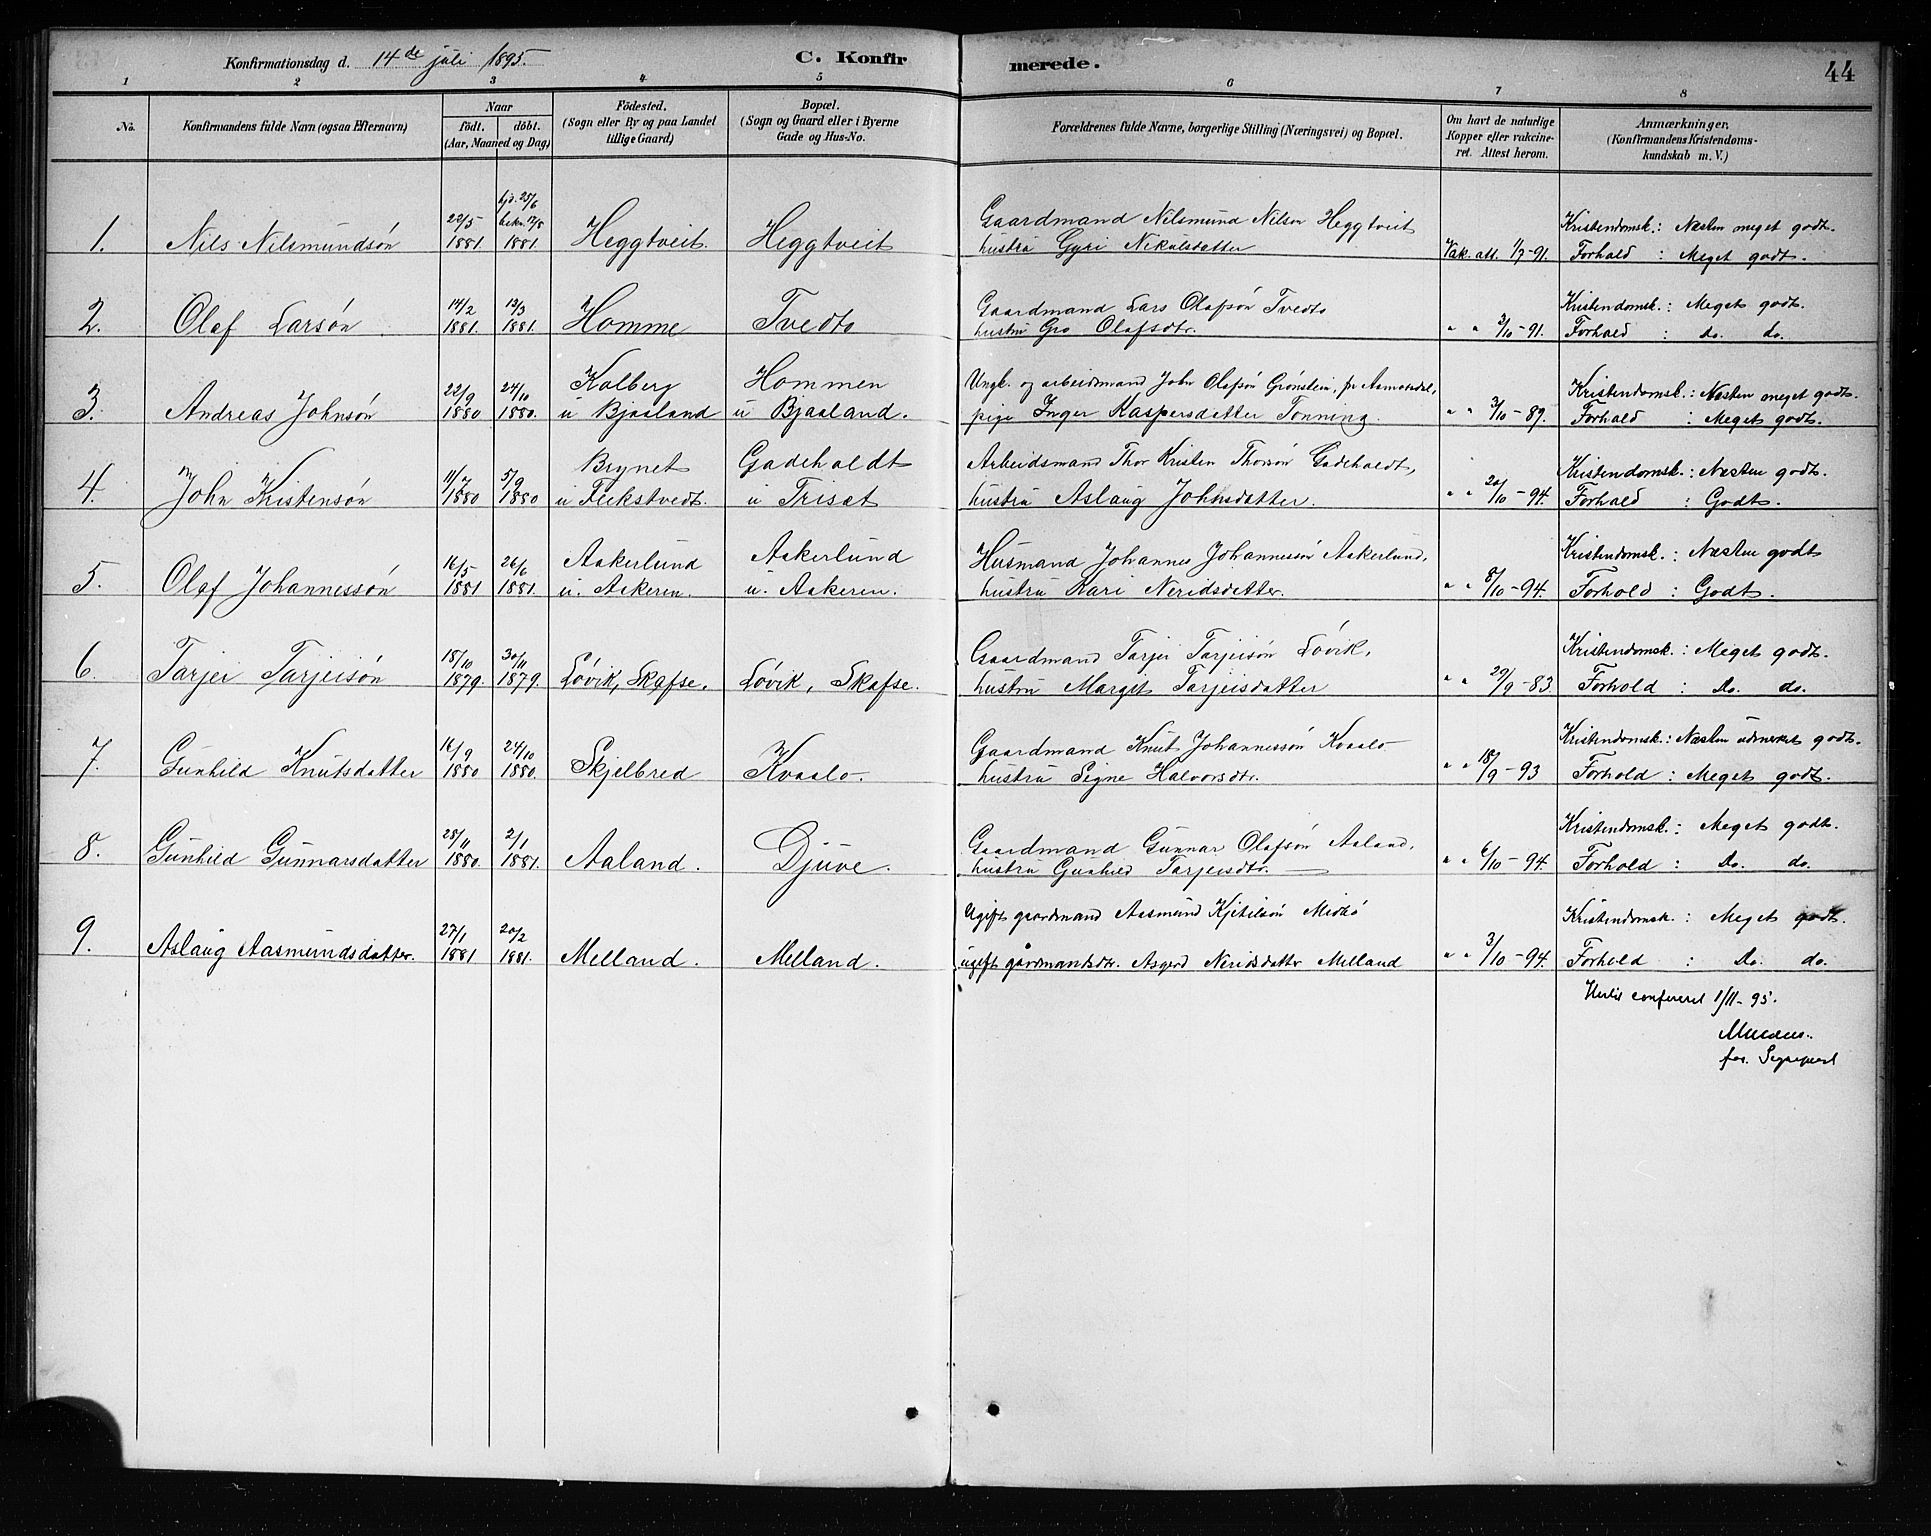 Konfirmationsdag d. 14de juli 1895. C. Konfirmerede. 44
1 2 3 4 5 6 7 8
No. Konfirmandens fulde Navn (ogsaa Efternavn)
Naar
födt. döbt.
(Aar, Maaned og Dag)
Födested.
(Sogn eller By og paa Landet
tillige Gaard)
Bopæl.
(Sogn og Gaard eller i Byerne
Gade og Hus-No.
Forældrenes fulde Navne, borgerlige Stilling (Næringsvei) og Bopæl.
Om havt de naturlige
Kopper eller vakcine-
ret. Attest herom.
Anmærkninger,
(Konfirmandens Kristendoms-
kundskab m. V.)
1. Nils Nilsmundsøn 22/5 1881. hjd. 25/6 bekr. 17/8 1881. Heggtveit Heggtveit
Gaardmand Nilsmund Nilson Heggtveit
hustru Gyri Nikulsdatter Vak. att. 1/7-91.
Kristendomsk.: Næsten meget godt.
Forhold : Meget godt.
2. Olaf Larsøn 14/2 1881. 13/3 1881. Homme Tvedto
Gaardmand Lars Olafsøn Tvedto
hustru Gro Olafsdtr. " " 3/10-91.
Kristendomsk.: Meget godt.
Forhold : Do. do.
3. Andreas Johnsøn 22/9 1880 24/10 1880. Kalberg u Bjaaland Hommen u Bjaaland.
Ungk. og arbeidsmand John Olafsøn Grønstein, fr Aamotsdal,
pige Inger Kaspersdatter Tonning. " " 3/10-89.
Kristendomsk.: Næsten meget godt.
Forhold : Meget godt.
4. John Kristensøn 11/7 1880 5/9 1880 Brynet u Flekstvedt. Gadeholdt u Trisæt
Arbeidsmand Thor Kristen Thorsøn Gadeholdt,
hustru Aslaug Johnsdatter. " " 20/10-94.
Kristendomsk.: Næsten godt.
Forhold : Godt.
5. Olaf Johannessøn 16/5 1881 26/6 1881. Aakerlund u. Aakeren. Aakerlund u. Aakeren.
Husmand Johannes Johannessøn Aakerlund,
hustru Kari Neridsdatter. " " 8/10-94.
Kristendomsk.: Næsten godt
Forhold : Godt.
6. Tarjei Tarjeisøn 18/10 1879. 30/11 1879. Løvik, Skafse. Løvik, Skafse.
Gaardmand Tarjei Tarjeisøn Løvik,
hustru Margit Tarjeisdatter " " 29/9-83.
Kristendomsk.: Meget godt.
Forhold : Do. do.
7. Gunhild Knutsdatter 16/9 1880 24/10 1880. Skjelbred Kvaalo.
Gaardmand Knut Johannessøn Kvaalo
hustru Signe Halvorsdtr. " " 18/9-93
Kristendomsk.: Næsten udmerket godt.
Forhold : Meget godt.
8. Gunhild Gunnarsdatter 28/11 1880. 2/1 1881. Aaland. Djuve.
Gaardmand Gunnar Olafsøn Aaland,
hustru Gunhild Tarjeisdtr. " " 6/10-94.
Kristendomsk.: Meget godt.
Forhold : Do. do.
9. Aslaug Aasmundsdatter. 27/1 1881 20/2 1881. Melland. Melland.
Ugift gaardmand Aasmund Kjetilsøn Midbø
ugift gårdmantsdtr. Asgerd Neridsdatter Melland " " 3/10-94.
Kristendomsk.: Meget godt.
Forhold : Do. do.
Hertil confereret 1/11-95.
for. Sognepræst